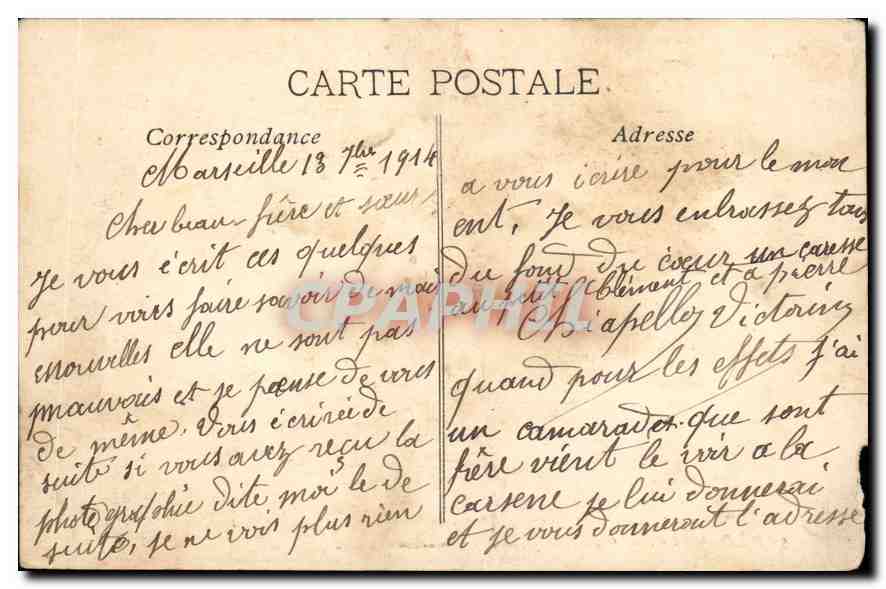 CARTE POSTALE
Correspondance
Marseille 13 7bre 1914
Cher beau-frère et sœur
Je vous écrit ces quelques
pour voirs faire savoir de mais
enouvelles elle ne sont pas
mauvais et je pense de vous
de même. Vous écrirée de
suite si vous avez reçu la
photographie dite mois le de
suite, je ne vois plus rien
Adresse
a vous ecrire pour le mom
ent. Je vous enbrassez tous
du fond du cœur un caresse
au petit Clément et a pierre
Chiapello Victorin
quand pour les effets j'ai
un camarades que sont
frère vient le voir a la
carsene je lui donnerai
et je vous donneront l'adresse
CPAPHIL